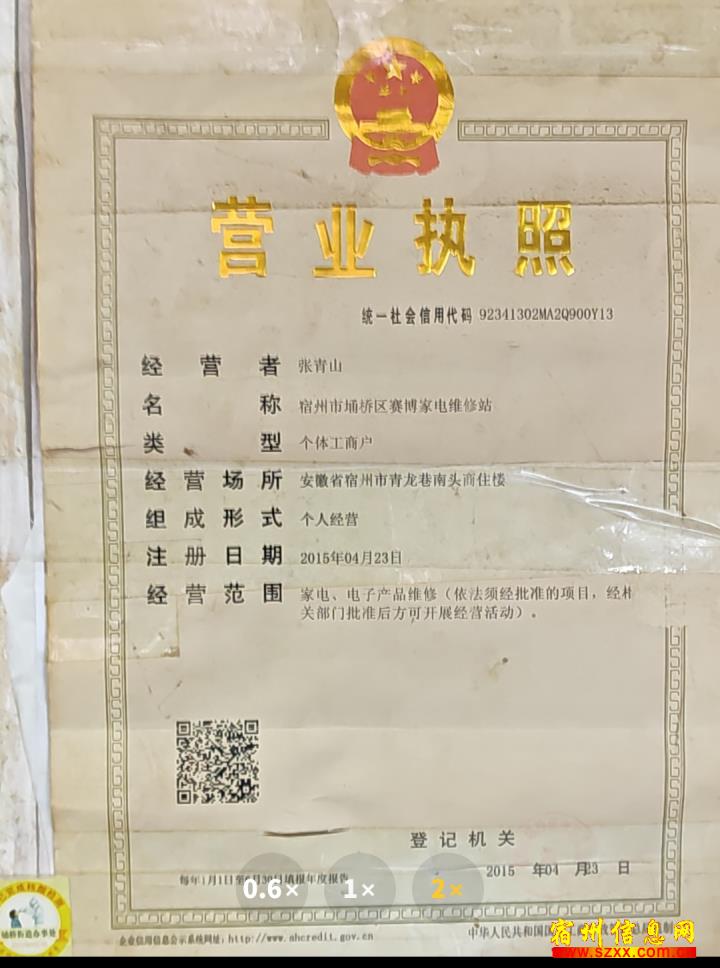 营业执照
统一社会信用代码 92341302MA2Q900Y13
经营者 张青山
名称 宿州市埇桥区赛博家电维修站
类型 个体工商户
经营场所 安徽省宿州市青龙巷南头商住楼
组成形式 个人经营
注册日期 2015年04月23日
经营范围 家电、电子产品维修（依法须经批准的项目，经相
关部门批准后方可开展经营活动）。
登记机关
2015 年 04 月 23 日
每年1月1日至6月30日填报年度报告
0.6× 1× 2×
埇桥街道办事处
企业信用信息公示系统网址：http://www.ahcredit.gov.cn
中华人民共和国
宿州信息网
www.szxx.com.cn